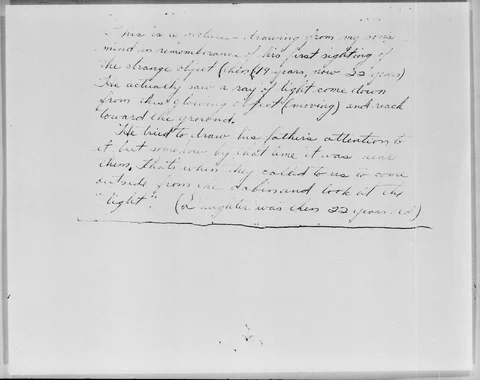 This is a picture - drawing from my sons
mind in rememberance of his first sighting of
the strange object (then (19 years, now 22 years)
He actually saw a ray of light come down
from this glowing object (moving) and reach
toward the ground.
He tried to draw his father's attention to
it but somehow by that time it was near
them. That's when they called to us to come
outside from the cabin and look at the
"light". (Daughter was then 22 years.